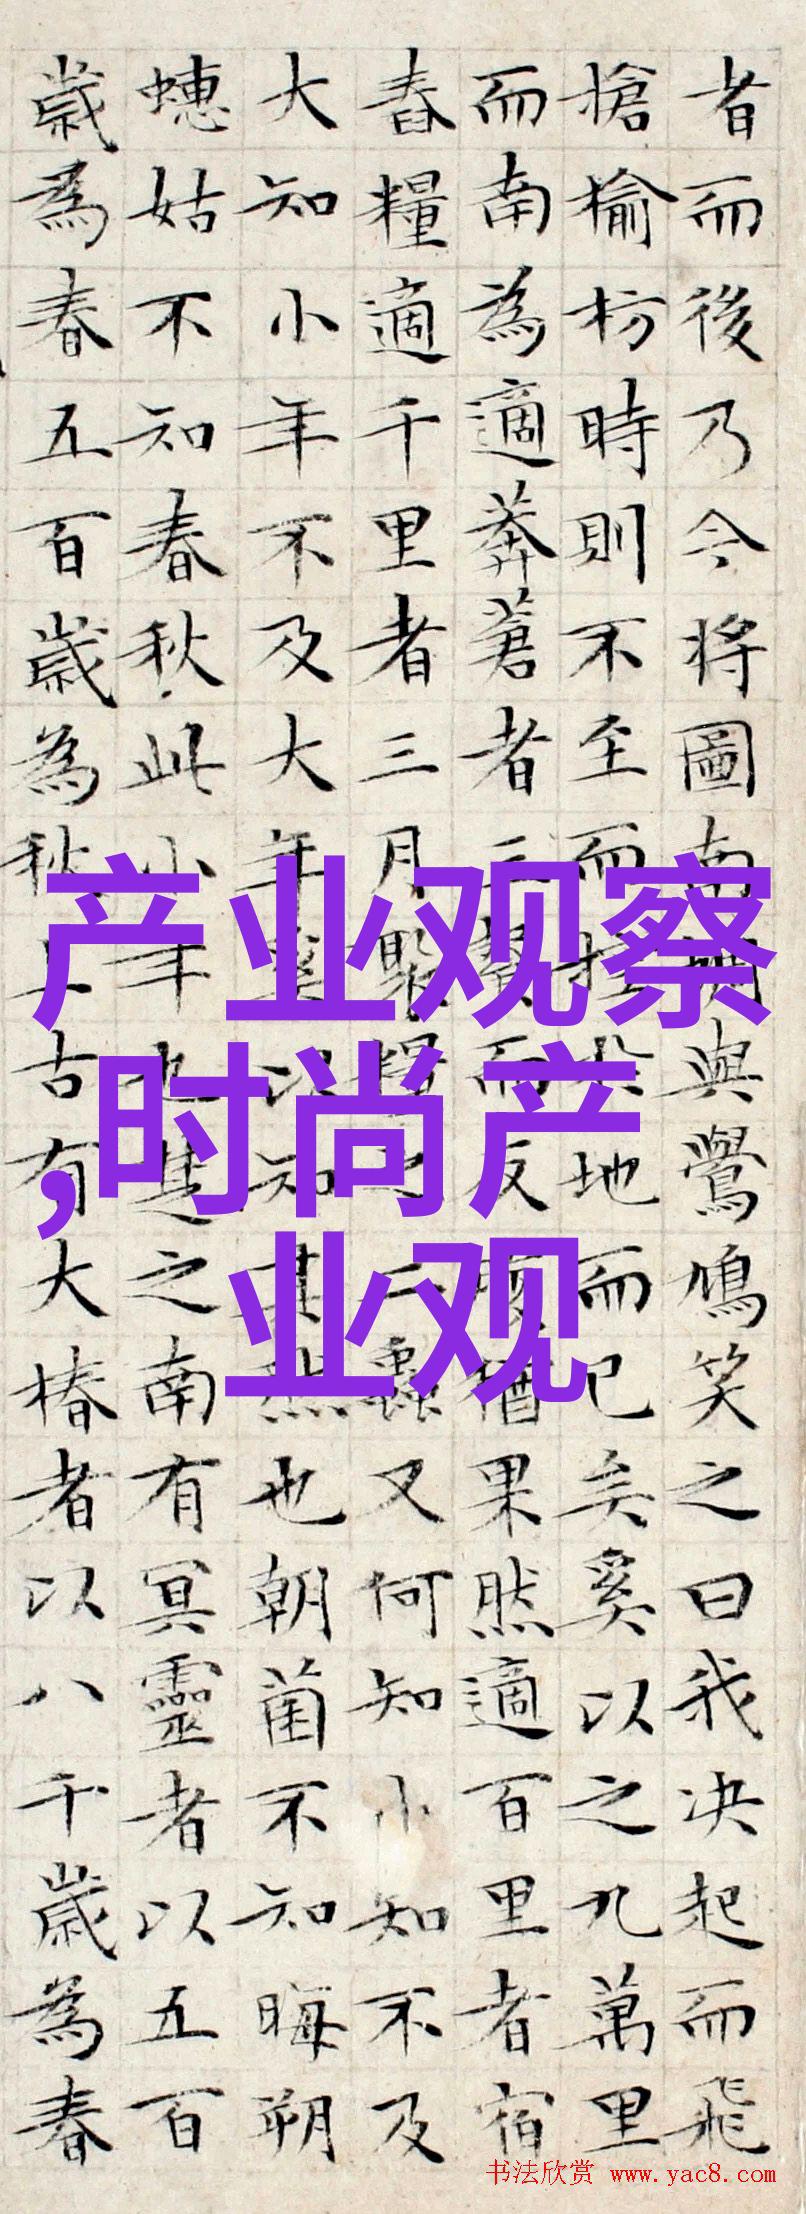 者而後乃今將圖南蜩與鷽鳩笑之曰我決起而飛
搶榆枋時則不至而控於地而已矣奚以之九萬里
而南為適莽蒼者三餐而反腹猶果然適百里者宿
舂糧適千里者三月聚糧之二蟲又何知小知不及
大知小年不及大年奚以知其然也朝菌不知晦朔
蟪姑不知春秋此小年也楚之南有冥靈者以五百
歲為春五百歲為秋上古有大椿者以八千歲為春
产业观察
,时尚产
业观
书法欣赏 www.yac8.com